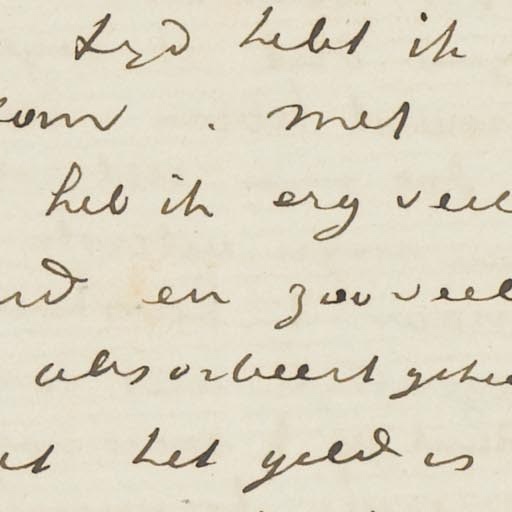 Tyd hebt ik
om . Met
heb ik erg veel
en zooveel
absorbeert gehe
het geld is